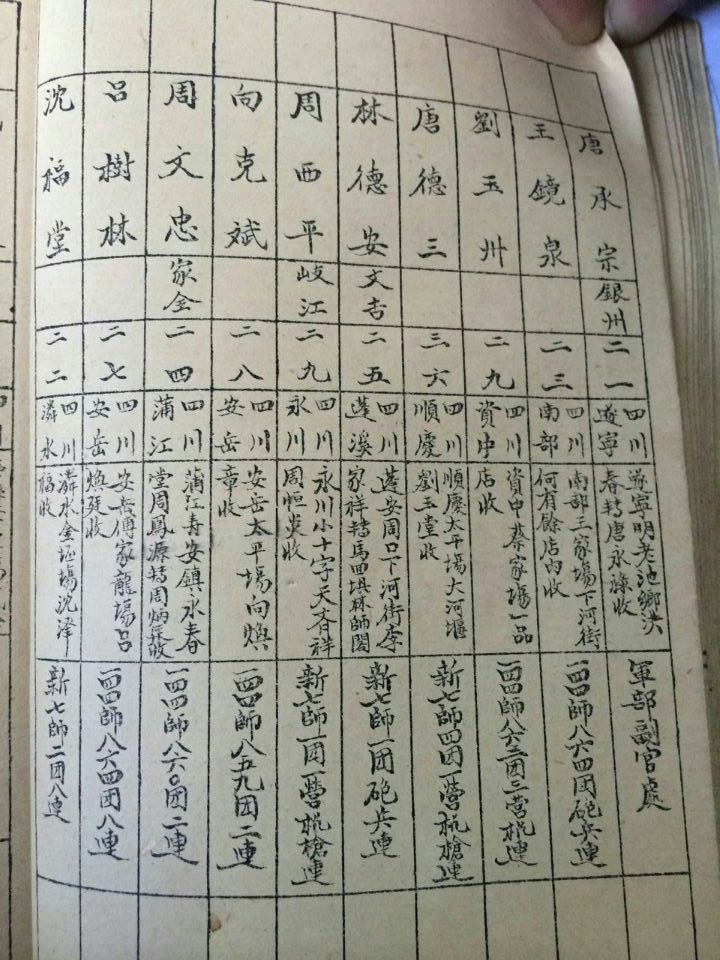 唐承宗
銀州
二一
四川
遂寧
遂寧明老池鄉洪
春轉唐永祿收
軍部副官處
王鏡泉
二三
四川
南部
南部王家場下河街
何有餘店內收
一四四師八六四团砲兵連
劉玉州
二九
四川
資中
資中蔡家場一品
店收
一四四師八六二团三營机連
唐德三
三六
四川
順慶
順慶太平場大河堰
劉玉堂收
新七師四团一營机槍連
林德安
文吉
二五
四川
蓬溪
蓬安周口下河街李
家祥轉馬回埧林師閣
新七師一团砲兵連
周西平
岐江
二九
四川
永川
永川小十字天吉祥
周恒炎收
新七師一团一營机槍連
向克斌
二八
四川
安岳
安岳太平場向煥
章收
一四四師八五九团二連
周文忠
家全
二四
四川
蒲江
蒲江寿安鎮永春
堂周鳳源轉周炳
一四四師八六〇团二連
呂樹林
二七
四川
安岳
安岳傅家龍場呂
煥廷收
一四四師八六四团八連
沈福堂
二二
四川
潾水
潾水金垭場沈澤
福收
新七師二团八連